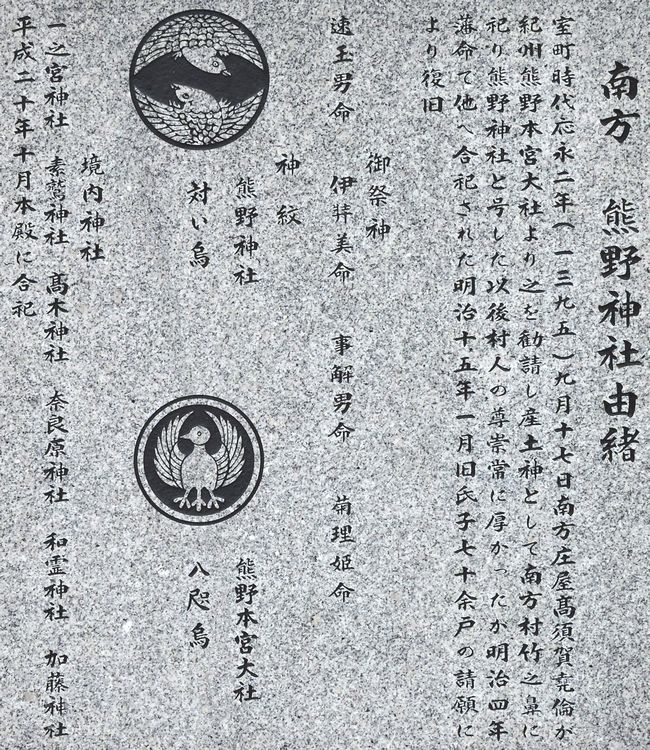 南方　熊野神社由緒
室町時代応永二年（一三九五）九月十七日南方庄屋髙須賀堯倫が
紀州熊野本宮大社より之を勧請し産土神として南方村竹之鼻に
祀り熊野神社と号した以後村人の尊崇常に厚かったが明治四年
藩命で他へ合祀された明治十五年一月旧氏子七十余戸の請願に
より復旧
御祭神
速玉男命　伊弉美命　事解男命　菊理姫命
神紋
熊野神社
対い烏
熊野本宮大社
八咫烏
境内神社
一之宮神社　素鵞神社　髙木神社　奈良原神社　和霊神社　加藤神社
平成二十年十月本殿に合祀